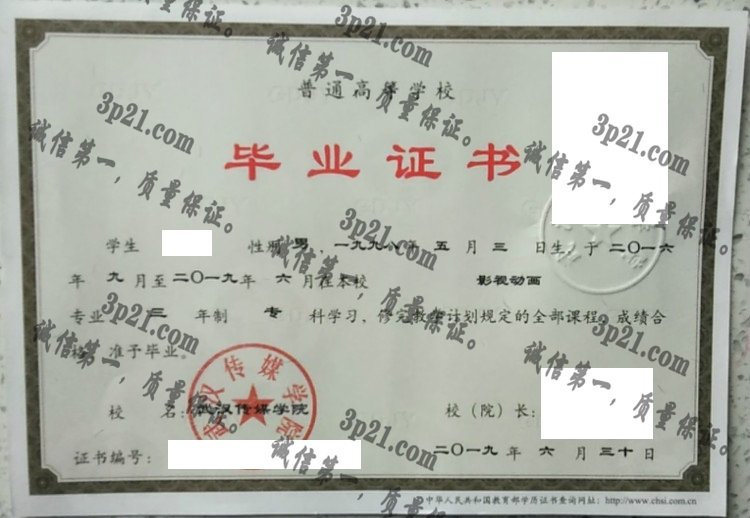 普通高等学校
毕业证书
学生 性别 男，一九九八年 五 月 三 日生，于二〇一六
年 九 月至二〇一九年 六 月在本校 影视动画
专业 三 年制 专 科学习，修完教学计划规定的全部课程，成绩合
格，准予毕业。
武汉传媒学院
校 名：武汉传媒学院 校（院）长：
证书编号： 二〇一九 年 六 月 三十 日
中华人民共和国教育部学历证书查询网址：http://www.chsi.com.cn
3p21.com
诚信第一，质量保证。
3p21.com
诚信第一，质量保证。
3p21.com
诚信第一，质量保证。
3p21.com
诚信第一，质量保证。
3p21.com
诚信第一，质量保证。
3p21.com
诚信第一，质量保证。
3p21.com
诚信第一，质量保证。
3p21.com
诚信第一，质量保证。